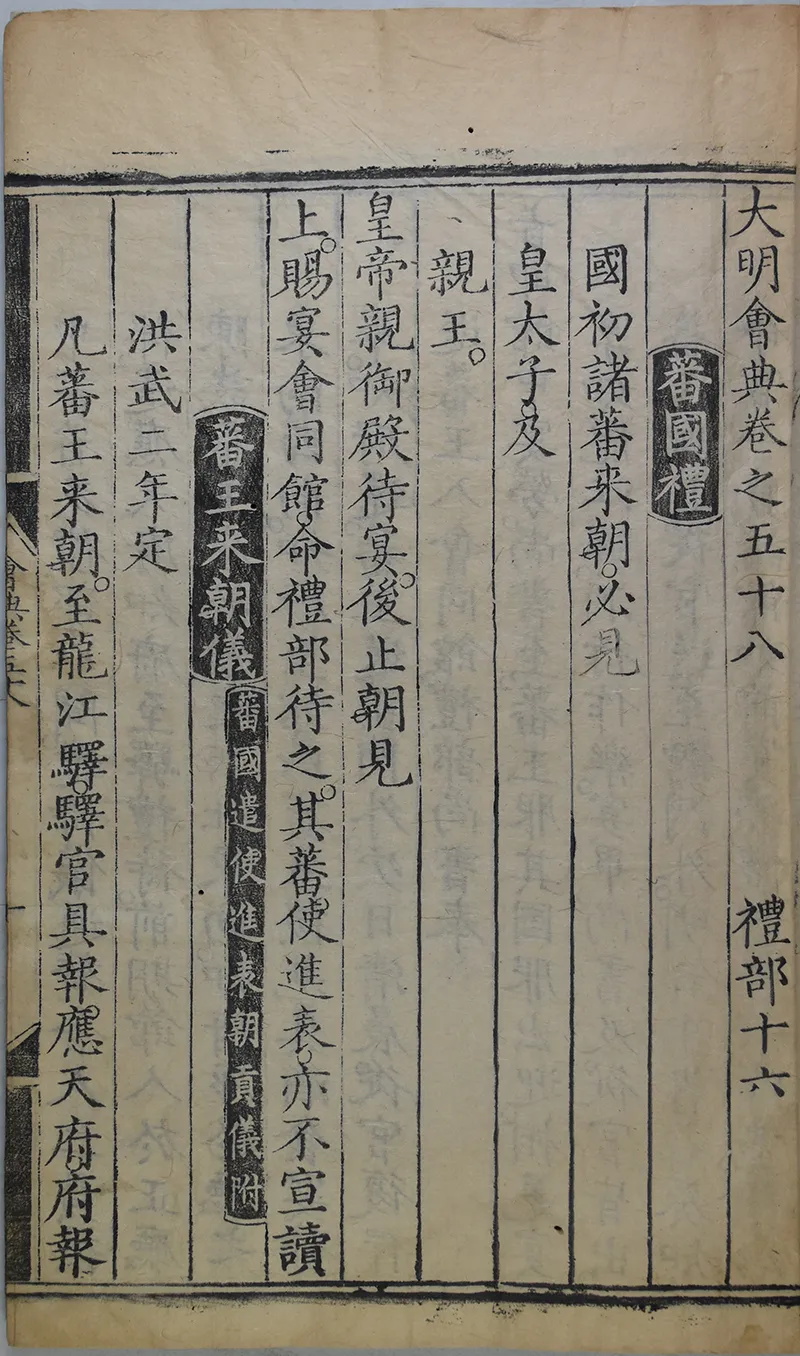 大明會典卷之五十八 禮部十六
蕃國禮
國初諸蕃来朝。必見
皇太子。及
親王。
皇帝親御殿待宴。後止朝見
上。賜宴會同館。命禮部待之。其蕃使進表。亦不宣讀
蕃王来朝儀 蕃國遣使進表朝貢儀附
洪武二年定
凡蕃王来朝。至龍江驛。驛官具報。應天府。府報
會典卷五十八
一